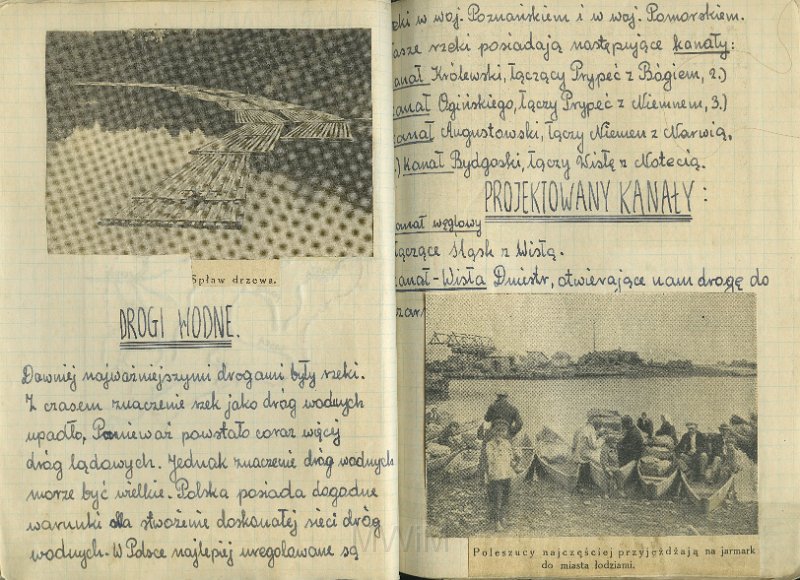 Spław drzewa.
DROGI WODNE.
Dawniej najważniejszymi drogami były rzeki.
Z czasem znaczenie rzek jako dróg wodnych
upadło, Ponieważ powstało coraz więcej
dróg lądowych. Jednak znaczenie dróg wodnych
morze być wielkie. Polska posiada dogodne
warunki dla stwożenie doskonałej sieci dróg
wodnych. W Polsce najlepiej uregolowane są
eki w woj. Poznańskiem i w woj. Pomorskiem.
asze rzeki posiadają następujące kanały:
anał Królewski, łączący Prypeć z Bógiem, 2.)
kanał Ogińskiego, łączy Prypeć z Niemnem, 3.)
kanał Augustowski, łączy Niemen z Narwią,
.) Kanał Bydgoski, łączy Wisłę z Notecią.
PROJEKTOWANY KANAŁY:
kanał węglowy
łączące Śląsk z Wisłą.
kanał-Wisła Dniestr, otwierające nam drogę do
czar
Poleszucy najczęściej przyjeżdżają na jarmark
do miasta łodziami.
MWIM